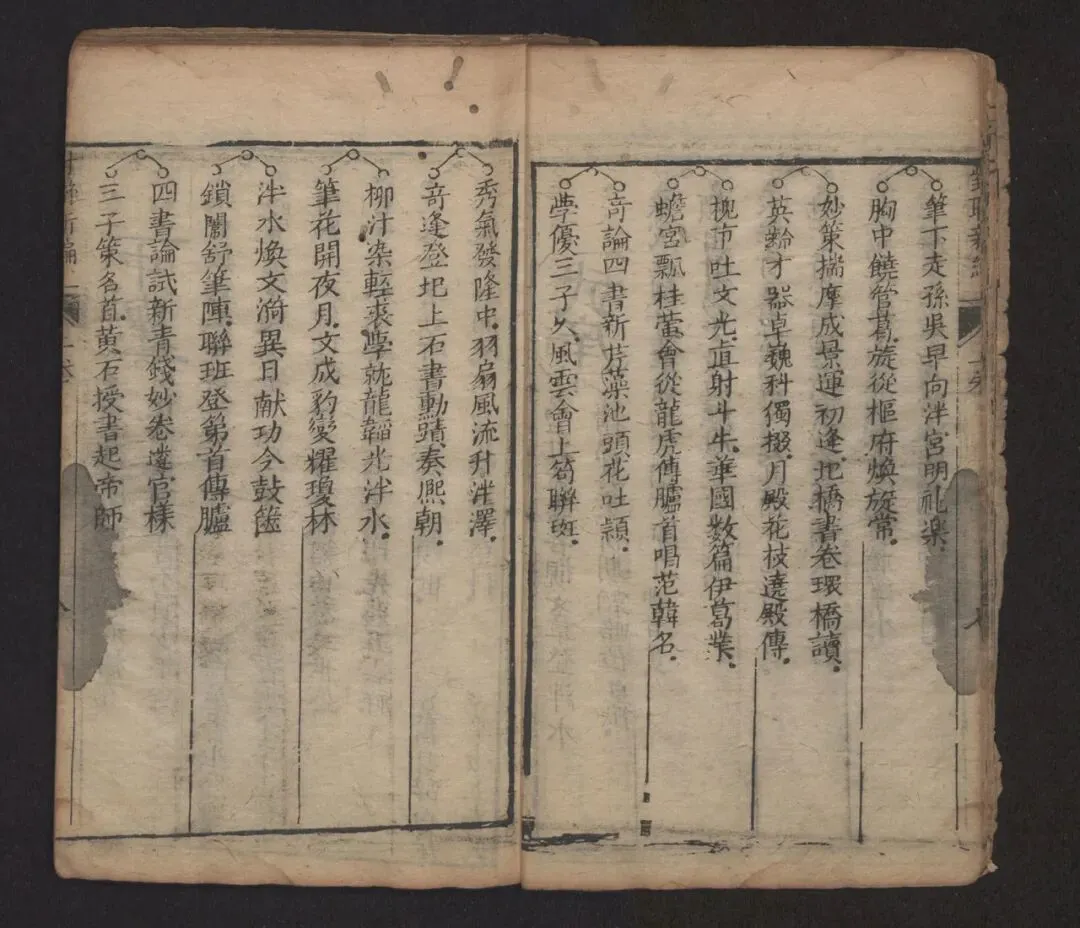 筆下走孫吳早向泮宮明礼楽.
胸中饒管葛.旋從樞府煥旂常.
妙策揣摩成.景運初逢.圯橋書卷環橋讀.
英齡才噐卓.巍科獨掇.月殿花枝遶殿傳.
槐市吐文光.直射斗牛.華國数篇伊葛業.
蟾宮飄桂蕚會從龍虎傳臚首唱范韓名.
竒論四書新芹藻池頭.花吐頴.
學優三子乆.風雲會上筍聯班.
秀氣發隆中.羽扇風流升泮澤.
竒逢登圯上石書勳蹟.奏熈朝.
柳汁染輕裘.學就龍韜光泮水.
筆花開夜月.文成豹變耀瓊林
泮水煥文漪異日献功今鼓篋
鎖闈舒筆陣.聯班登第首傳臚
四書論試新青錢妙卷遵官様
三子策名首.黃石授書起帝師